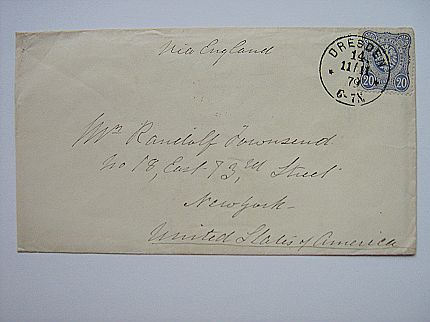 Via England
DRESDEN
14
11/11
79
6-7N
20 20
Mrs Randolf Townsend
No 18, East 73rd Street
New York
United States of America